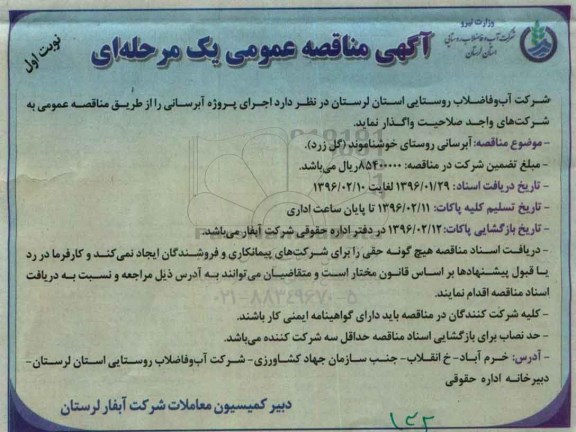 وزارت نیرو
شرکت آب و فاضلاب روستایی
استان لرستان
نوبت اول
آگهی مناقصه عمومی یک مرحله‌ای
شرکت آب‌وفاضلاب روستایی استان لرستان در نظر دارد اجرای پروژه آبرسانی را از طریق مناقصه عمومی به
شرکت‌های واجد صلاحیت واگذار نماید.
- موضوع مناقصه: آبرسانی روستای خوشناموند (گل زرد).
- مبلغ تضمین شرکت در مناقصه: ۸۵۴۰۰۰۰۰ریال می‌باشد.
- تاریخ دریافت اسناد: ۱۳۹۶/۰۱/۲۹ لغایت ۱۳۹۶/۰۲/۱۰
- تاریخ تسلیم کلیه پاکات: ۱۳۹۶/۰۲/۱۱ تا پایان ساعت اداری
- تاریخ بازگشایی پاکات: ۱۳۹۶/۰۲/۱۲ در دفتر اداره حقوقی شرکت آبفار می‌باشد.
- دریافت اسناد مناقصه هیچ گونه حقی را برای شرکت‌های پیمانکاری و فروشندگان ایجاد نمی‌کند و کارفرما در رد
یا قبول پیشنهادها بر اساس قانون مختار است و متقاضیان می‌توانند به آدرس ذیل مراجعه و نسبت به دریافت
اسناد مناقصه اقدام نمایند.
۰۲۱-۸۸۳۴۹۶۷۰-۵
- کلیه شرکت کنندگان در مناقصه باید دارای گواهینامه ایمنی کار باشند.
- حد نصاب برای بازگشایی اسناد مناقصه حداقل سه شرکت کننده می‌باشد.
- آدرس: خرم آباد- خ انقلاب- جنب سازمان جهاد کشاورزی- شرکت آب‌وفاضلاب روستایی استان لرستان-
دبیرخانه اداره حقوقی
دبیر کمیسیون معاملات شرکت آبفار لرستان